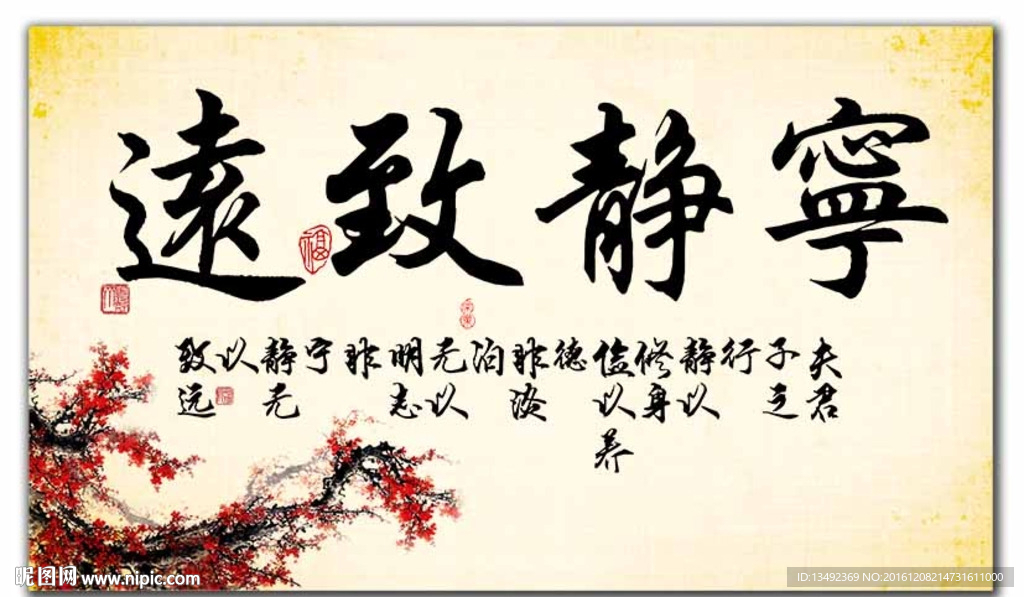 寧静致遠
福
夫君
子之
行
静以
修身
俭以养
德
非淡
泊
无以
明志
非
宁
静无
以
致远
昵图网 www.nipic.com
ID:13492369 NO:20161208214731611000